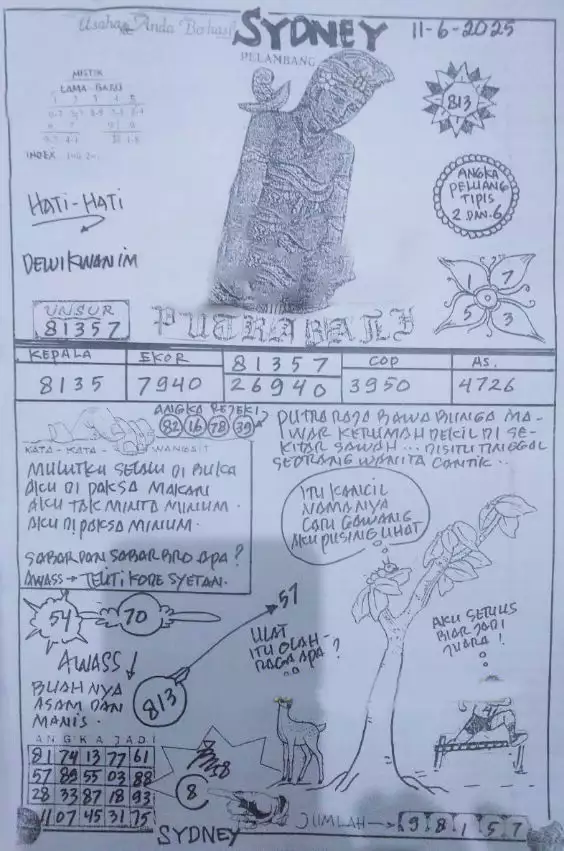 Usaha Anda Berhasil
SYDNEY
11-6-2025
PELAMBANG
MISTIK
LAMA - BARU
1 2 3 4 5
INDEX
813
ANGKA
PELUANG
TIPIS
2 DAN 6
HATI-HATI
DEWI KWAN IM
1 7
5 3
UNSUR
81357
PUTRA BALI
KEPALA
EKOR
81357
COP
AS.
8135
7940
26940
3950
4726
ANGKA REJEKI
82 16 78 39
KATA - KATA - WANGSIT
MULUTKU SELALU DI BUKA
AKU DI PAKSA MAKAN
AKU TAK MINTA MINUM.
AKU DI PAKSA MINUM.
SABAR DAN SABAR BRO APA?
AWASS → TELITI KODE SYETAN.
PUTRA RAJA BAWA BUNGA MA-
WAR KERUMAH DEKIL DI SE-
KITAR SAWAH... DISITU TINGGAL
SEORANG WANITA CANTIK..
ITU KANCIL
NAMANYA
CARI GAWANG
AKU PUSING LIHAT
54
70
57
ULAT
ITU OLAH-
RAGA APA?
AKU SERIUS
BIAR JADI
JUARA!
AWASS!
BUAHNYA
ASAM DAN
MANIS.
813
ANGKA JADI
81 74 13 77 61
57 89 55 03 88
28 33 87 18 93
11 07 45 31 75
8
JUMLAH → 9 8 1 5 7
SYDNEY